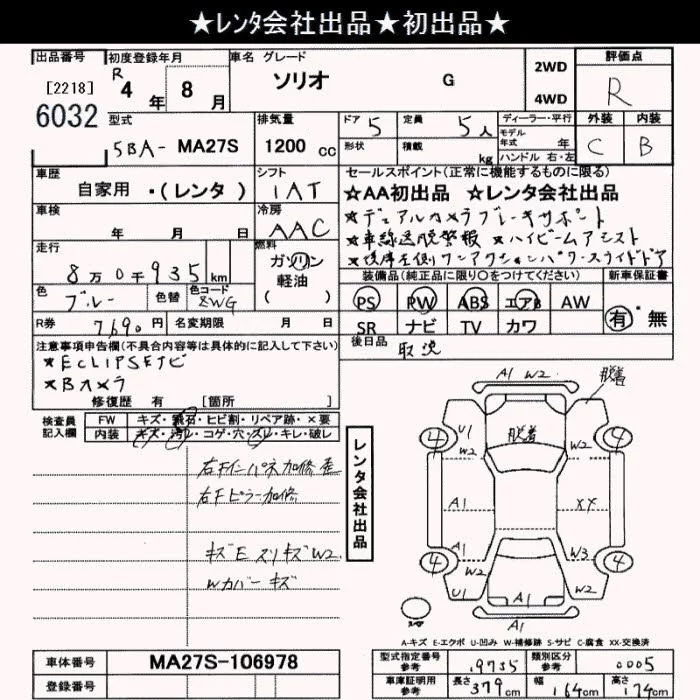 ★レンタ会社出品★初出品★
出品番号 初度登録年月 車名 グレード 評価点
[2218] R 4年 8月 ソリオ G 2WD 4WD R
6032
型式 排気量 ドア 5 定員 5人 ディーラー・平行 外装 内装
5BA- MA27S 1200 cc 形状 積載 kg モデル年式 年 ハンドル 右・左 C B
車歴 シフト セールスポイント(正常に機能するものに限る)
自家用 ・(レンタ) IAT ★AA初出品 ★レンタ会社出品
車検 冷房 ★デュアルカメラブレーキサポート
年 月 日 AAC ★車線逸脱警報 ★ハイビームアシスト
走行 燃料 ★後席左側ワンアクションパワースライドドア
8万0千935 km ガソリン 軽油 ( )
装備品(純正品に限り○をつけてください) 新車保証書
色 ブルー 色替 色コード ZWG
PS PW ABS エアB AW 有・無
R券 7690円 名変期限 月 日
SR ナビ TV カワ
注意事項申告欄(不具合内容等は具体的に記入して下さい)
後日品 取説
★ECLIPSEナビ
★Bカメラ
修復歴 有 [箇所 ]
検査員記入欄 FW キズ・飛石・ヒビ割・リペア跡・×要
内装 キズ・汚レ・コゲ・穴・スレ・キレ・破レ
右Fインパネ加修歪
右Fピラー加修
キズE スリキズW2
Wカバーキズ
レンタ会社出品
A1 W2 脱着
4 U1 W2 脱着 W2 4
A1 XX
A1 W3
4 W2 4
U1 A1 W2
A1
A-キズ E-エクボ U-凹み W-補修跡 S-サビ C-腐食 XX-交換済
車体番号 MA27S-106978
登録番号
型式指定番号 参考 19735 類別区分 参考 0005
車庫証明用 参考 長さ 379cm 幅 164cm 高さ 174cm